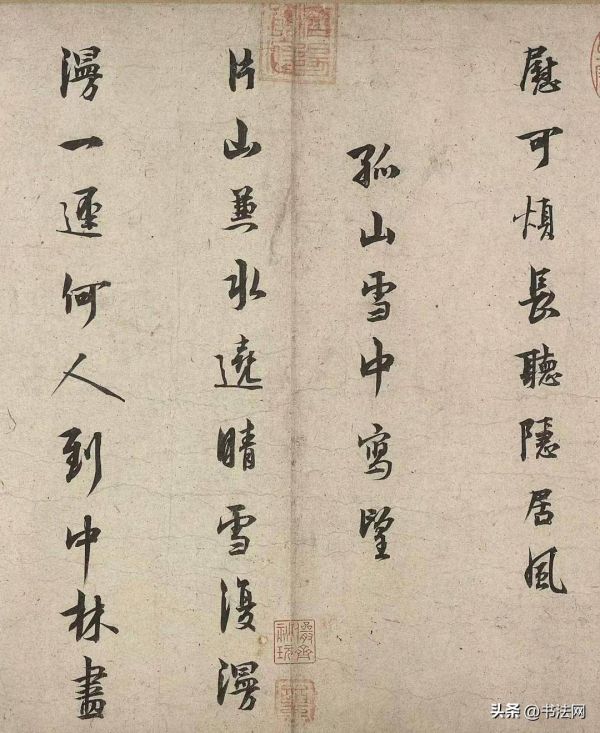 慰可煩長聽隱居風
孤山雪中寫望
片山兼水遶晴雪復漫
漫一逕何人到中林盡
头条 @书法网